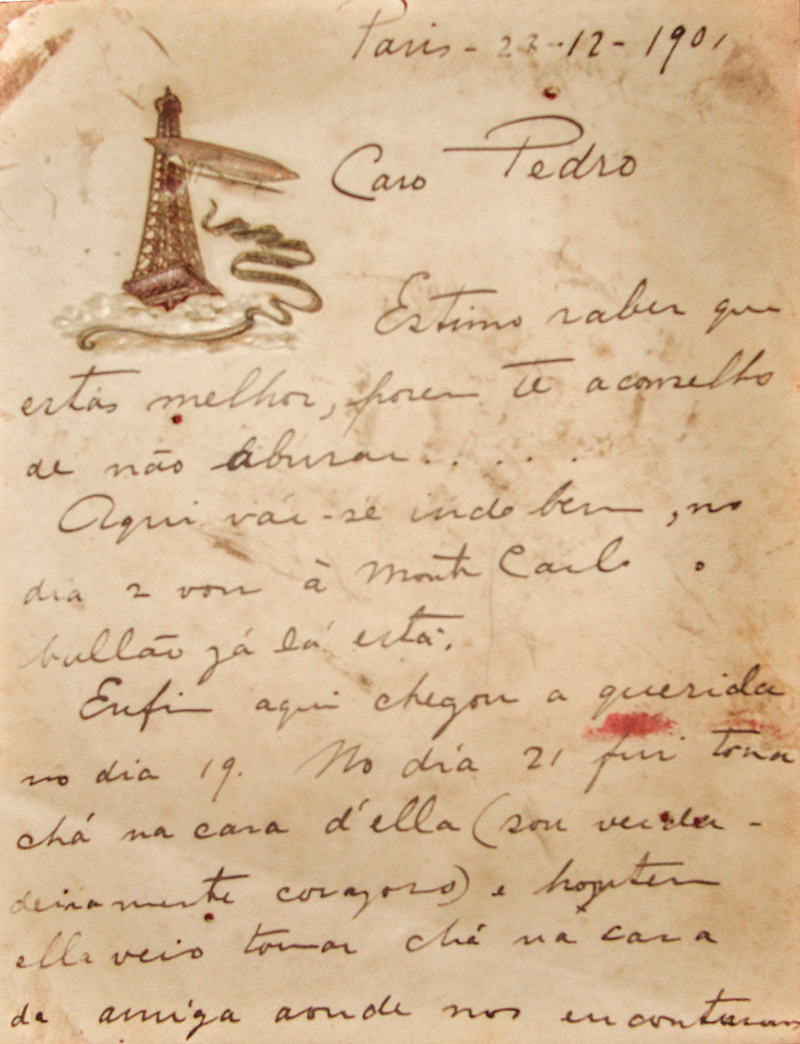 Paris - 23-12-1901
Caro Pedro
Estimo saber que
estás melhor, porem te aconselho
de não abusar.....
Aqui vai-se indo bem, no
dia 2 vou à Monte Carlo o
ballão já lá está.
Enfim aqui chegou a querida
no dia 19. No dia 21 fui tomar
chá na casa d'ella (sou verda-
deiramente corajoso) e hontem
ella veio tomar chá na casa
da amiga aonde nos encontramos